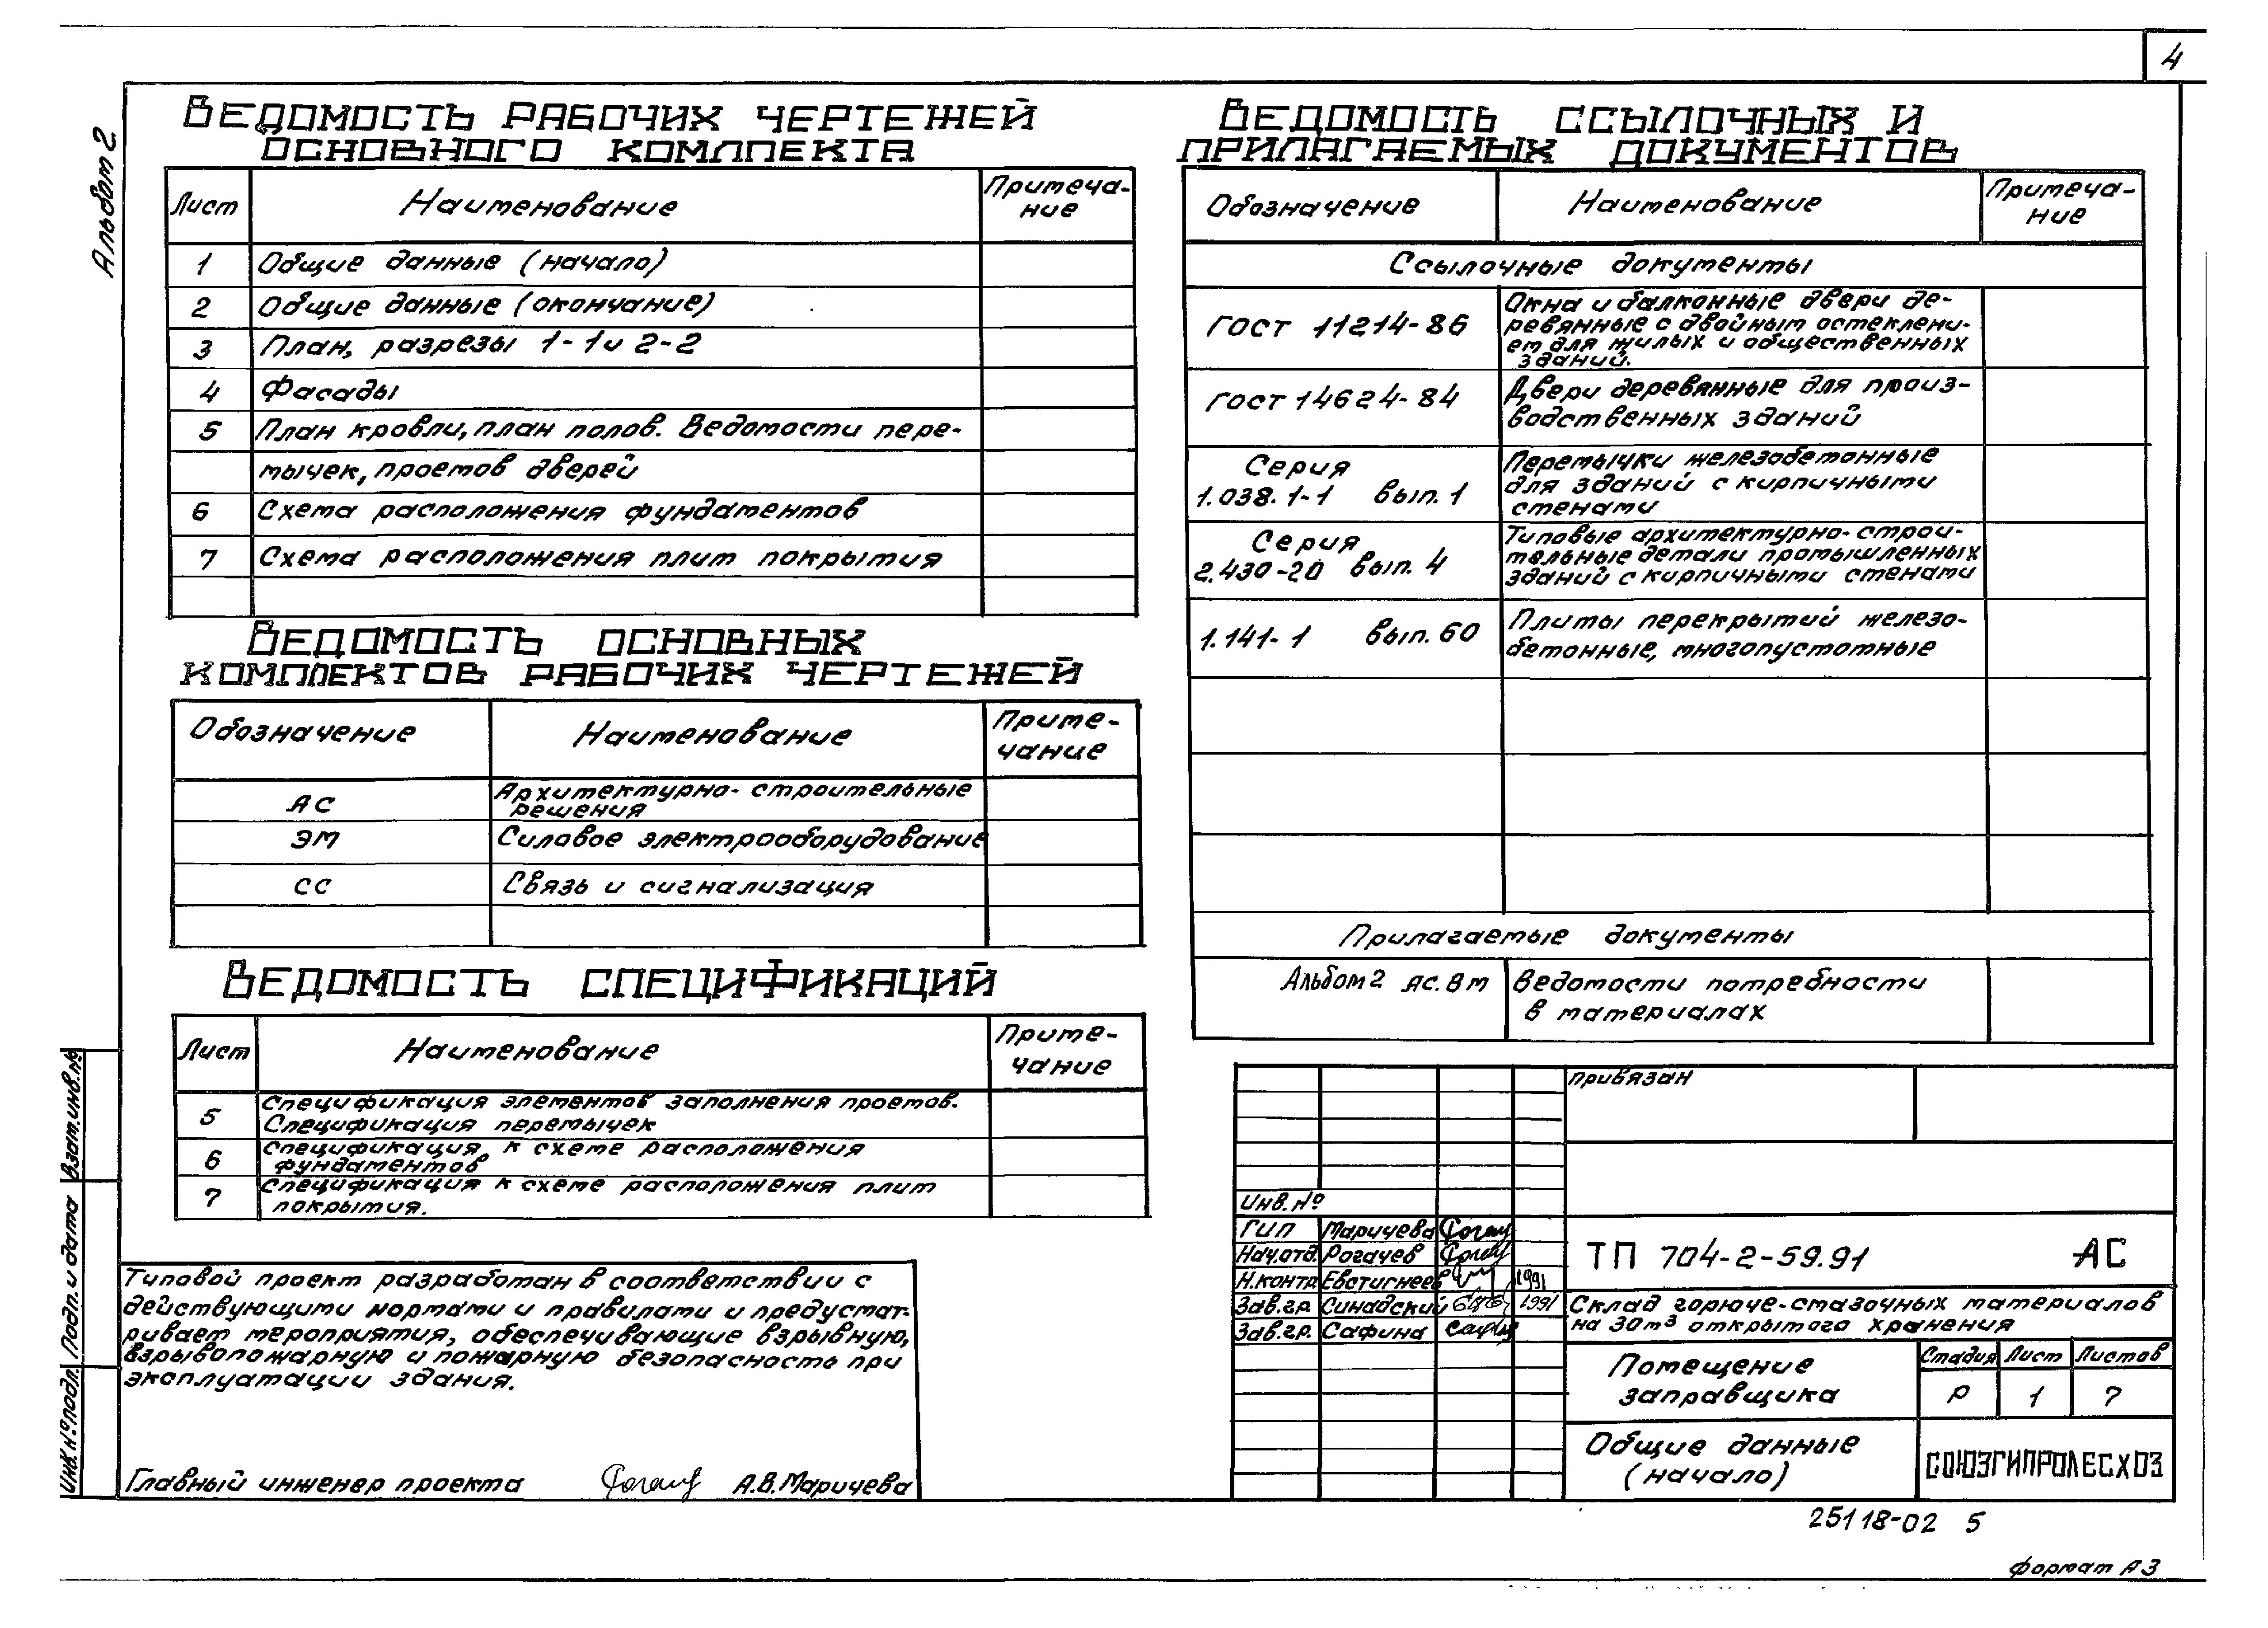 4
Альбом 2
Ведомость рабочих чертежей
основного комплекта
Лист Наименование Примеча-
ние
1 Общие данные (начало)
2 Общие данные (окончание)
3 План, разрезы 1-1 и 2-2
4 Фасады
5 План кровли, план полов. Ведомости пере-
мычек, проемов дверей
6 Схема расположения фундаментов
7 Схема расположения плит покрытия
Ведомость основных
комплектов рабочих чертежей
Обозначение Наименование Приме-
чание
АС Архитектурно-строительные
решения
ЭМ Силовое электрооборудование
СС Связь и сигнализация
Ведомость спецификаций
Лист Наименование Приме-
чание
5 Спецификация элементов заполнения проемов.
Спецификация перемычек
6 Спецификация к схеме расположения
фундаментов
7 Спецификация к схеме расположения плит
покрытия.
Типовой проект разработан в соответствии с
действующими нормами и правилами и предусмат-
ривает мероприятия, обеспечивающие взрывную,
взрывопожарную и пожарную безопасность при
эксплуатации здания.
Главный инженер проекта А.В.Маричева
Ведомость ссылочных и
прилагаемых документов
Обозначение Наименование Примеча-
ние
Ссылочные документы
ГОСТ 11214-86 Окна и балконные двери де-
ревянные с двойным остеклени-
ем для жилых и общественных
зданий.
ГОСТ 14624-84 Двери деревянные для произ-
водственных зданий
Серия 1.038.1-1 вып. 1 Перемычки железобетонные
для зданий с кирпичными
стенами
Серия 2.430-20 вып. 4 Типовые архитектурно-строи-
тельные детали промышленных
зданий с кирпичными стенами
1.141-1 вып. 60 Плиты перекрытий железо-
бетонные, многопустотные
Прилагаемые документы
Альбом 2 АС.ВМ Ведомости потребности
в материалах
Привязан
Инв. №
ГИП Маричева
Нач.отд. Рогачев
Н.контр Евстигнеев 1991
Зав.гр. Синадский 1991
Зав.гр. Сафина
ТП 704-2-59.91 АС
Склад горюче-смазочных материалов
на 30м³ открытого хранения
Помещение
заправщика
Стадия Лист Листов
Р 1 7
Общие данные
(начало)
СОЮЗГИПРОЛЕСХОЗ
Инв.№ подл. Подп. и дата Взам.инв.№
25118-02 5
Формат А3